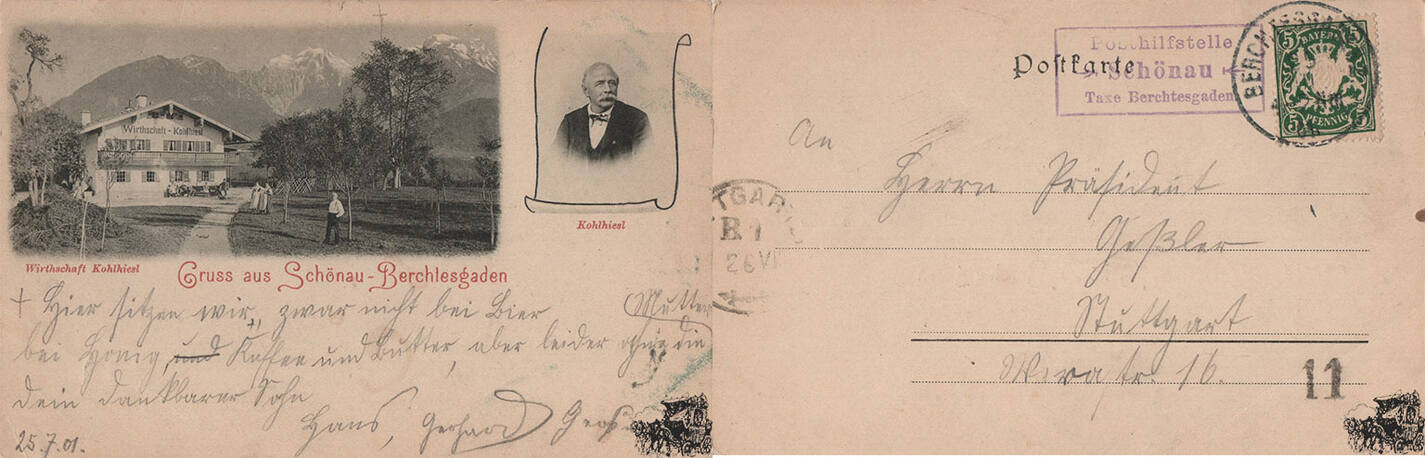 Wirthschaft - Kohlhiesl
Wirthschaft Kohlhiesl
Kohlhiesl
Gruss aus Schönau-Berchtesgaden
+ Hier sitzen wir, zwar nicht bei Bier
(Mutter
bei Honig, und Kaffee und Butter, aber leider ohne die
dein dankbarer Sohn
Hans, Gerhard
25.7.01.
Postkarte
Posthilfstelle
Schönau
Taxe Berchtesgaden
BAYERN
5 5
5 PFENNIG 5
An
Herrn Präsident
Geßler
Stuttgart
26 VII
11